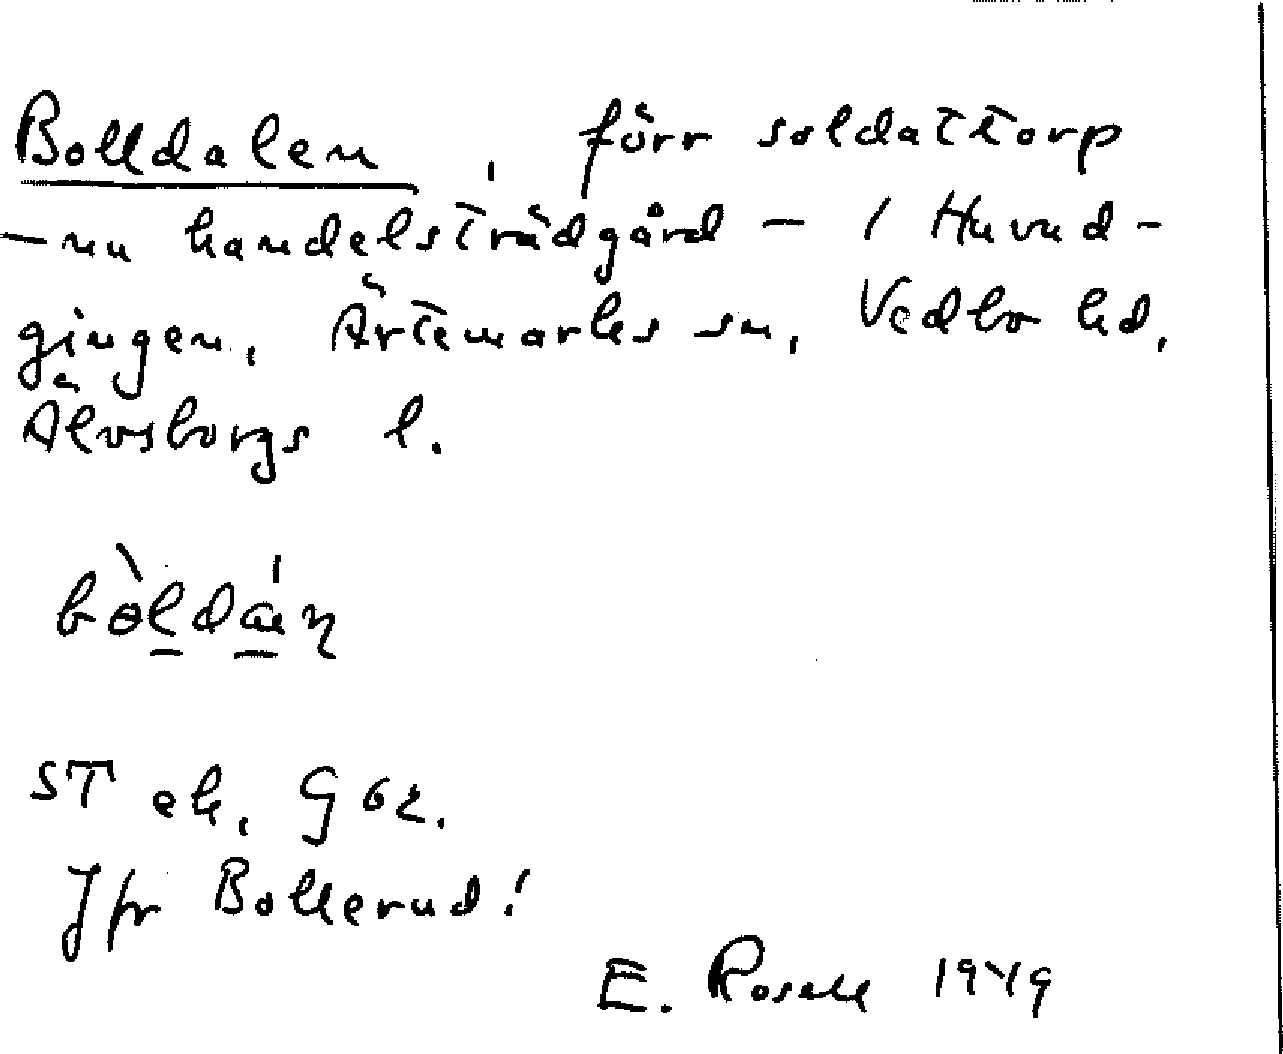 Bolldalen, förr soldattorp
– nu handelsträdgård – i Huvud-
gingen, Ärtemarks sn, Vedbo hd,
Älvsborgs l.
bòldáṇ
ST ek. G 62.
Jfr Bollerud!
E. Rosell 1949